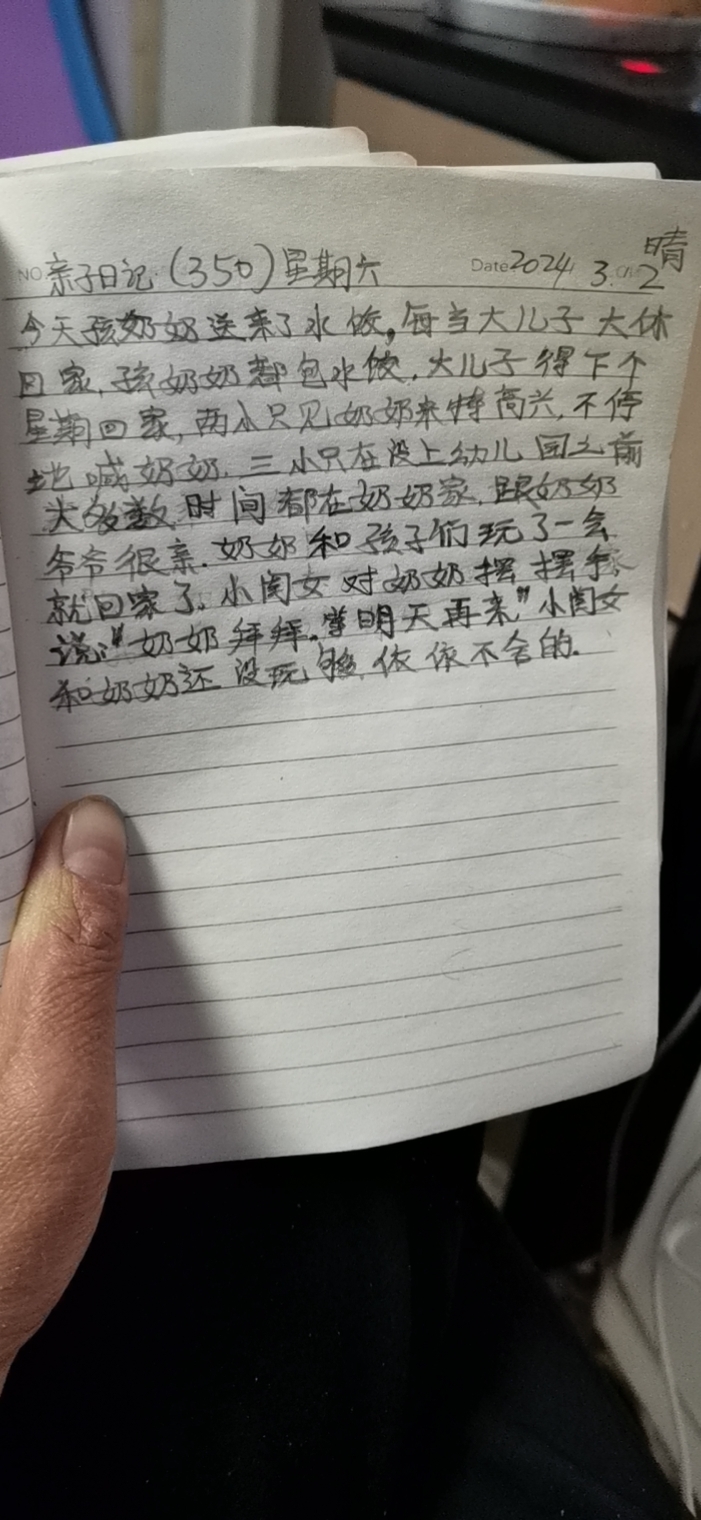 NO. 亲子日记 (350) 星期六 Date 2024 3. 2 晴
今天孩奶奶送来了水饺,每当大儿子大休
回家,孩奶奶都包水饺,大儿子得下个
星期回家,两小只见奶奶来特高兴,不停
地喊奶奶.三小只在没上幼儿园之前
大多数时间都在奶奶家,跟奶奶
爷爷很亲.奶奶和孩子们玩了一会
就回家了。小闺女对奶奶摆摆手
说:"奶奶拜拜。明天再来"小闺女
和奶奶还没玩够,依依不舍的.